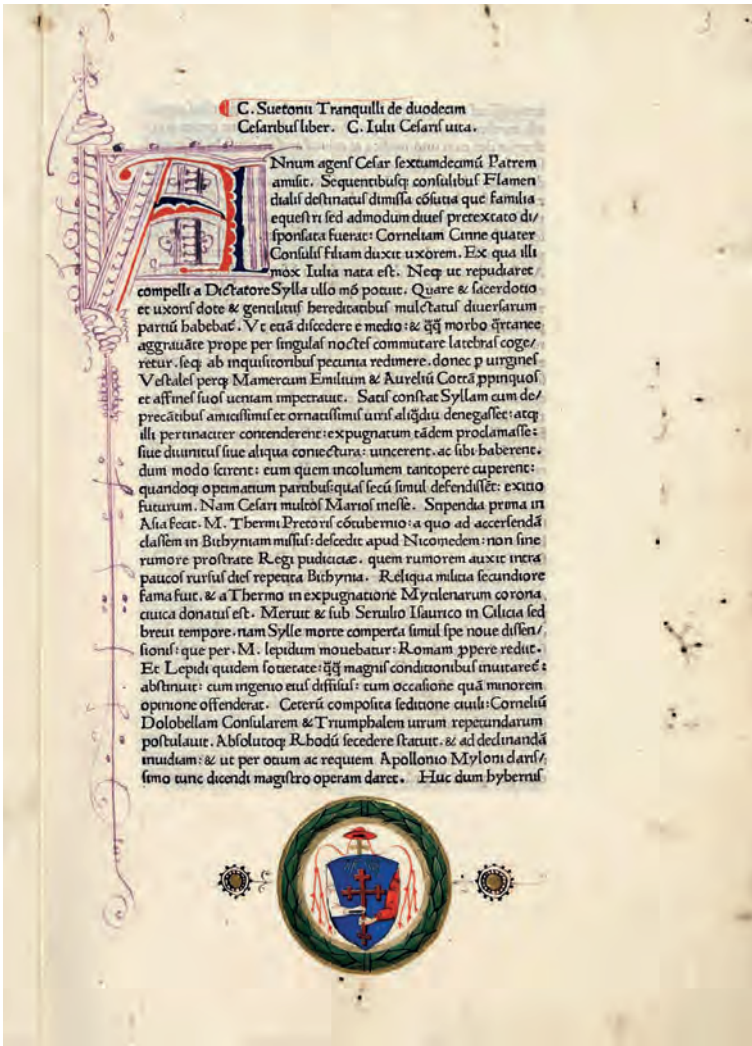 C. Suetonii Tranquilli de duodecim
Cesaribuſ liber. C. Iulii Ceſariſ uita.
ANnum agenſ Ceſar ſextumdecimū Patrem
amiſit. Sequentibuſq; conſulibuſ Flamen
dialiſ deſtinatuſ dimiſſa cōſutia que familia
equeſtri ſed admodum diueſ pretextato di/
ſponſata fuerat: Corneliam Cinne quater
Conſuliſ filiam duxit uxorem. Ex qua illi
mox Iulia nata eſt. Neq; ut repudiaret
compelli a Dictatore Sylla ullo mō potuit. Quare & ſacerdotio
et uxoriſ dote & gentilitiiſ hereditatibuſ mulctatuſ diuerſarum
partiū habebat̄. Vt etiā diſcedere e medio: & q̄q̄ morbo q̄rtanee
aggrauāte prope per ſingulaſ nocteſ commutare latebraſ coge/
retur. ſeq; ab inquiſitoribuſ pecunia redimere. donec p uirgineſ
Veſtaleſ perq; Mamercum Emilium & Aureliū Cottā ppinquoſ
et affineſ ſuoſ ueniam impetrauit. Satiſ conſtat Syllam cum de/
precātibuſ amiciſſimiſ et ornatiſſimiſ uiriſ aliq̄diu denegaſſet: atq;
illi pertinaciter contenderent: expugnatum tādem proclamaſſe:
ſiue diuinituſ ſiue aliqua coniectura: uincerent. ac ſibi haberent.
dum modo ſcirent: eum quem incolumem tantopere cuperent:
quandoq; optimatium partibuſ: quaſ ſecū ſimul defendiſſēt: exitio
futurum. Nam Ceſari multoſ Marioſ ineſſe. Stipendia prima in
Aſia fecit. M. Thermi Pretoriſ cōtubernio: a quo ad accerſendā
claſſem in Bithyniam miſſuſ: deſcedit apud Nicomedem: non ſine
rumore proſtrate Regi pudiciciæ. quem rumorem auxit intra
paucoſ rurſuſ dieſ repetita Bithynia. Reliqua militia ſecundiore
fama fuit. & a Thermo in expugnatione Mytilenarum corona
ciuica donatuſ eſt. Meruit & ſub Seruilio Iſaurico in Cilicia ſed
breui tempore. nam Sylle morte comperta ſimul ſpe noue diſſen/
ſioniſ: que per. M. lepidum mouebatur: Romam ppere rediit.
Et Lepidi quidem ſocietate: q̄q̄ magniſ conditionibuſ inuitaret̄:
abſtinuit: cum ingenio eiuſ diffiſuſ: tum occaſione quā minorem
opinione offenderat. Ceterū compoſita ſeditione ciuili: Corneliū
Dolobellam Conſularem & Triumphalem uirum repetundarum
poſtulauit. Abſolutoq; Rhodū ſecedere ſtatuit. & ad declinandā
inuidiam: & ut per otium ac requiem Apollonio Myloni clariſ/
ſimo tunc dicendi magiſtro operam daret. Huc dum hyberniſ